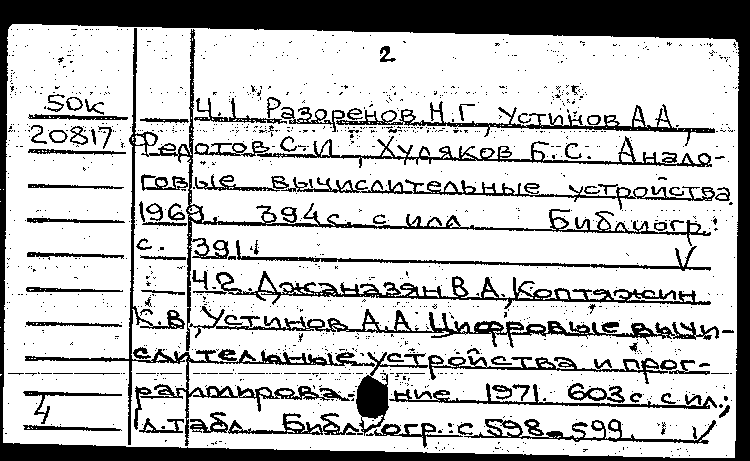 2
50к
Ч.1. Разоренов Н.Г., Устинов А.А.,
20817. Федотов С.И., Худяков Б.С. Анало-
говые вычислительные устройства
1969. 394с. с илл. Библиогр.:
с. 391. V
Ч.2. Джаназян В.А., Коптяжин
К.В., Устинов А.А. Цифровые вычи-
слительные устройства и прог-
раммирова- ние. 1971. 603с. с ил.;
4 1л.табл. Библиогр.: с.598-599. V